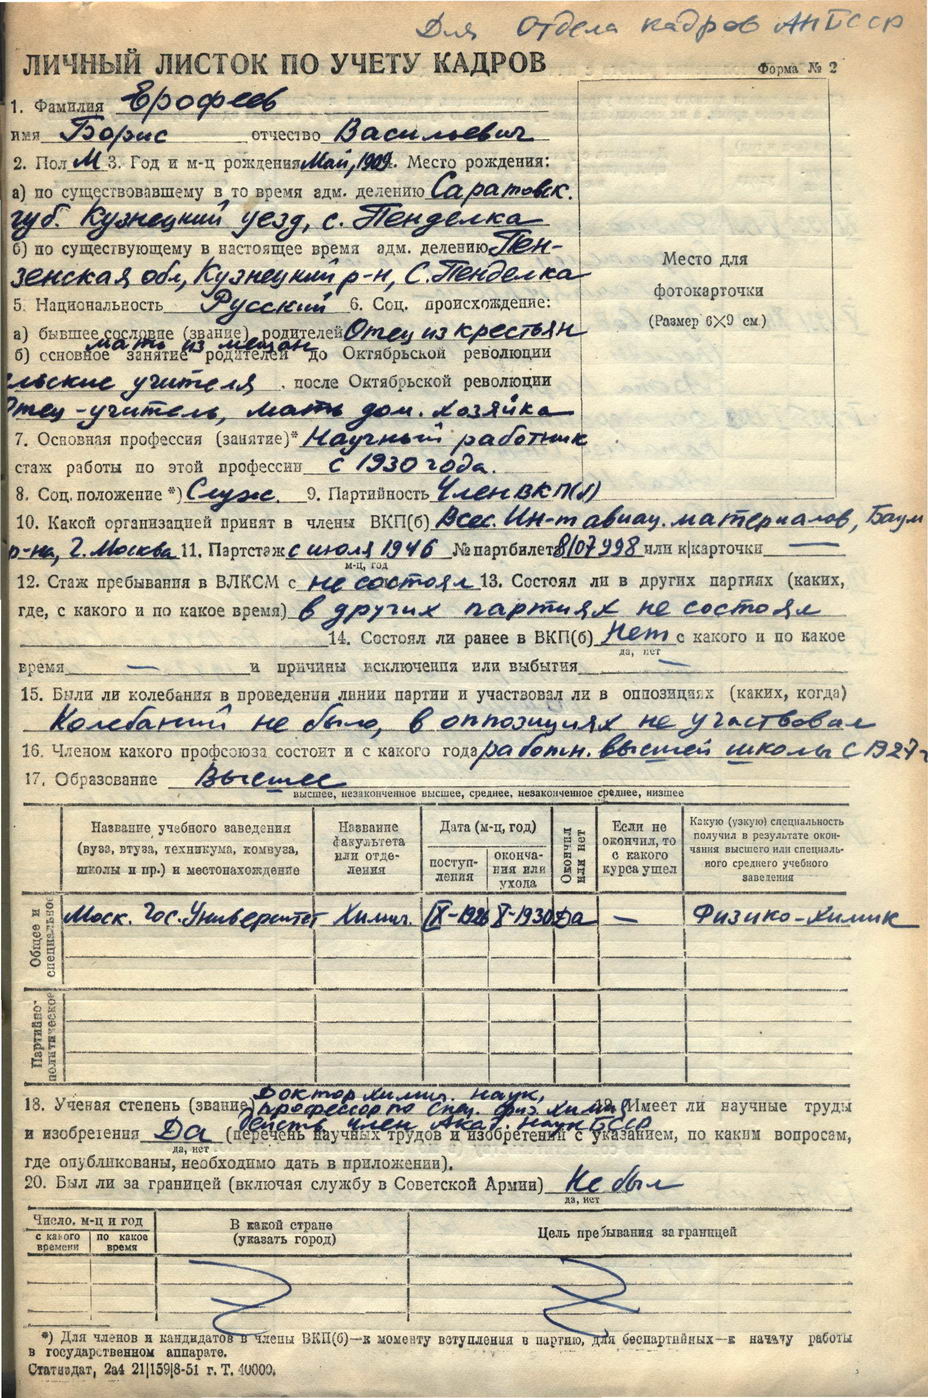 Для Отдела кадров АНБССР
ЛИЧНЫЙ ЛИСТОК ПО УЧЕТУ КАДРОВ
Форма № 2
1. Фамилия Ерофеев
имя Борис отчество Васильевич
2. Пол М 3. Год и м-ц рождения Май, 1909. Место рождения:
а) по существовавшему в то время адм. делению Саратовск.
губ. Кузнецкий уезд, с. Пенделка
б) по существующему в настоящее время адм. делению Пен-
зенская обл, Кузнецкий р-н, С. Пенделка
Место для
фотокарточки
(Размер 6×9 см)
5. Национальность Русский 6. Соц. происхождение:
а) бывшее сословие (звание) родителей Отец из крестьян
мать из мещан
б) основное занятие родителей до Октябрьской революции
льские учителя, после Октябрьской революции
Отец-учитель, мать дом. хозяйка
7. Основная профессия (занятие)* Научный работник
стаж работы по этой профессии с 1930 года.
8. Соц. положение *) Служ. 9. Партийность Член ВКП(б)
10. Какой организацией принят в члены ВКП(б) Всес. Ин-т авиац. материалов, Баум
р-на, г. Москва 11. Партстаж с июля 1946 № партбилета 8107998 или к|карточки —
м-ц, год
12. Стаж пребывания в ВЛКСМ с не состоял 13. Состоял ли в других партиях (каких,
где, с какого и по какое время) в других партиях не состоял
14. Состоял ли ранее в ВКП(б) Нет с какого и по какое
да, нет
время — и причины исключения или выбытия —
15. Были ли колебания в проведении линии партии и участвовал ли в оппозициях (каких, когда)
Колебаний не было, в оппозициях не участвовал
16. Членом какого профсоюза состоит и с какого года работн. высшей школы с 1927 г
17. Образование Высшее
высшее, незаконченное высшее, среднее, незаконченное среднее, низшее
Название учебного заведения
(вуза, втуза, техникума, комвуза,
школы и пр.) и местонахождение
Название
факультета
или отде-
ления
Дата (м-ц, год)
поступ-
ления
оконча-
ния или
ухода
Окончил
или нет
Если не
окончил, то
с какого
курса ушел
Какую (узкую) специальность
получил в результате окон-
чания высшего или специаль-
ного среднего учебного
заведения
Общее и
специальное
Моск. Гос. Университет Химич. IX-1926 X-1930 Да — Физико-Химик
Партийно-
политическое
18. Ученая степень (звание) Доктор химич. наук,
профессор по спец. физ. химия 19. Имеет ли научные труды
действ. член Акад. наук БССР
и изобретения Да (перечень научных трудов и изобретений с указанием, по каким вопросам,
да, нет
где опубликованы, необходимо дать в приложении).
20. Был ли за границей (включая службу в Советской Армии) Не был
да, нет
Число, м-ц и год
с какого
времени
по какое
время
В какой стране
(указать город)
Цель пребывания за границей
*) Для членов и кандидатов в члены ВКП(б)—к моменту вступления в партию, для беспартийных—к началу работы
в государственном аппарате.
Статиздат, 2а4 21|159|8-51 г. Т. 40000.